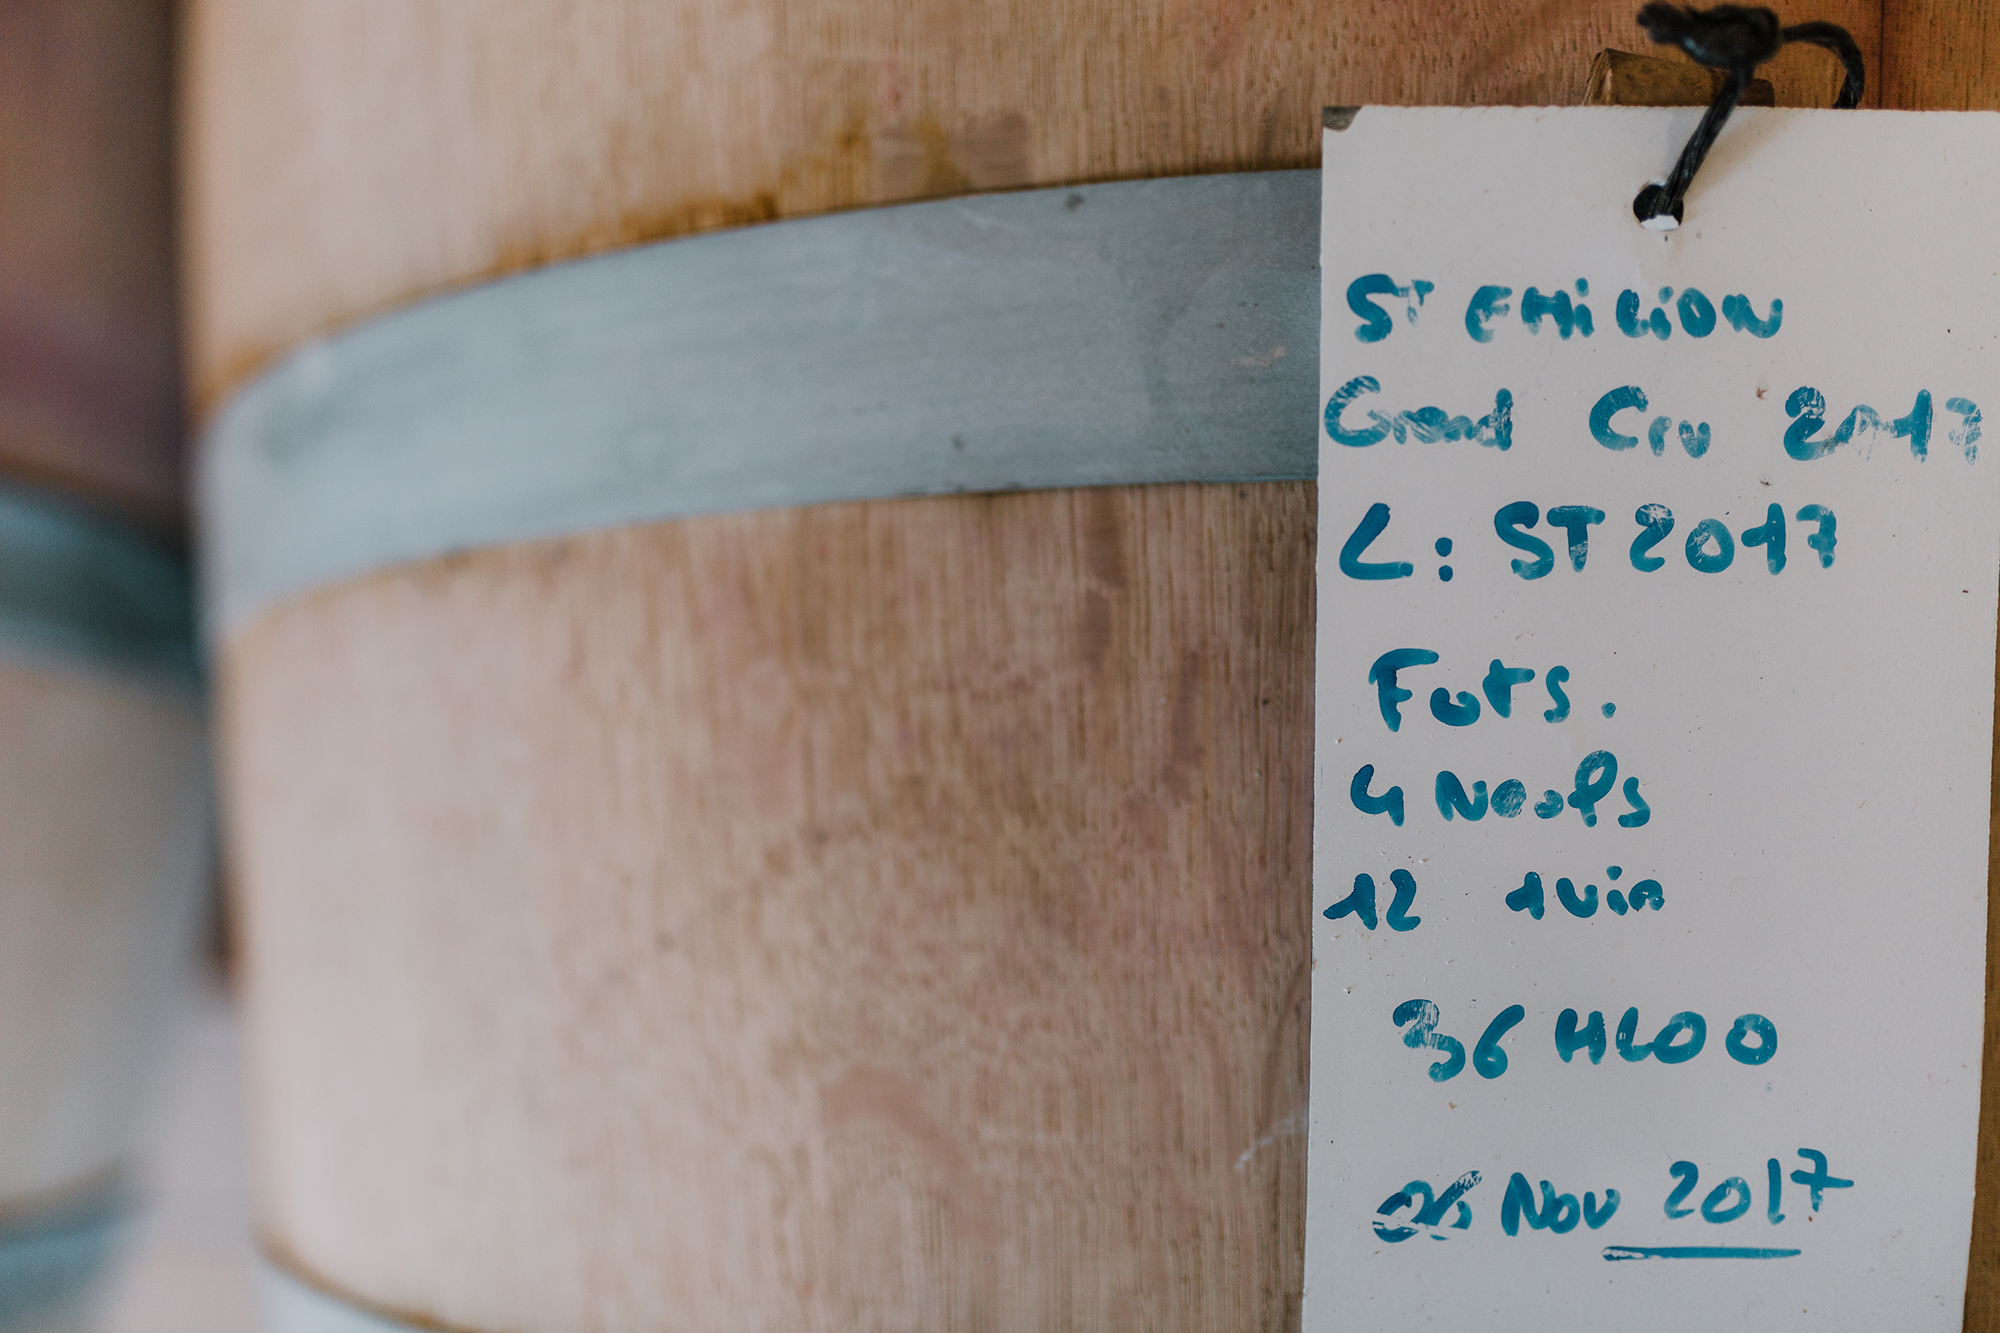 ST EMiLiON
Grand Cru 2017
L: ST2017
Futs.
4 Neufs
12 1vin
36 HL00
06 Nov 2017